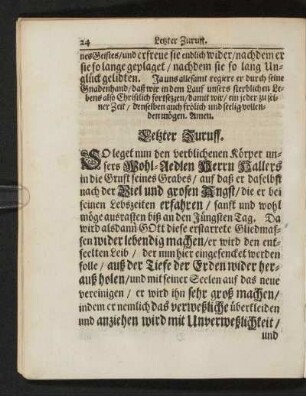 24 Letzter Zuruff.
nes Geistes/ und erfreue sie endlich wider/ nachdem er
sie so lange geplaget/ nachdem sie so lang Un-
glück gelidten. Ja uns allesamt regiere er durch seine
Gnadenhand/ daß wir in dem Lauf unsers sterblichen Le-
bens also Christlich fortsetzen/ damit wir/ ein jeder zu sei-
ner Zeit/ denselben auch frölich und seelig vollen-
den mögen. Amen.
Letzter Zuruff.
SO leget nun den verblichenen Körper un-
sers Wohl-Aedlen Herrn Hallers
in die Gruft seines Grabes/ auf daß er daselbst
nach der Viel und grosen Angst/ die er bei
seinen Lebszeiten erfahren/ sanft und wohl
möge ausrasten biß an den Jüngsten Tag. Da
wird alsdann GOtt diese erstarrete Gliedmas-
sen wider lebendig machen/ er wird den ent-
seelten Leib/ der nun hier eingesencket werden
solle/ auß der Tiefe der Erden wider her-
auß holen/ und mit seiner Seelen auf das neue
vereinigen/ er wird ihn sehr groß machen/
indem er nemlich das verweßliche überkleiden
und anziehen wird mit Unverweßlichkeit/
und